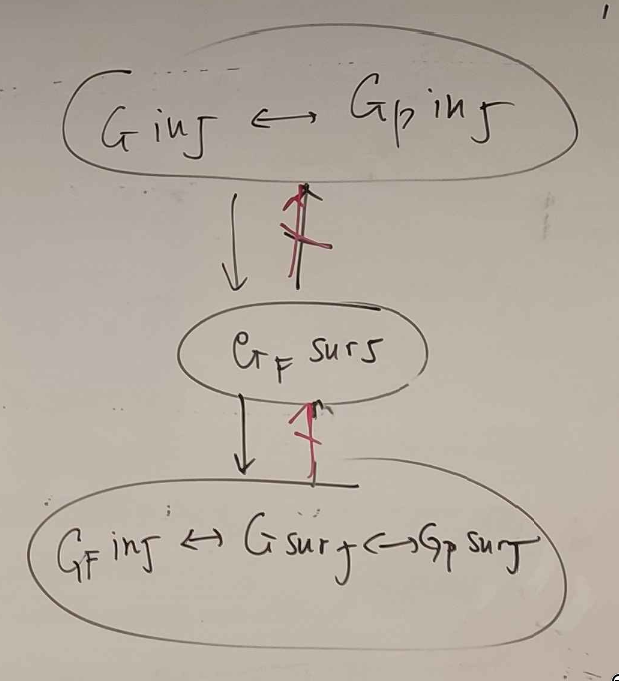 1
G inj ↔ Gp inj
G_F surj
G_F inj ↔ G surj ↔ Gp surj